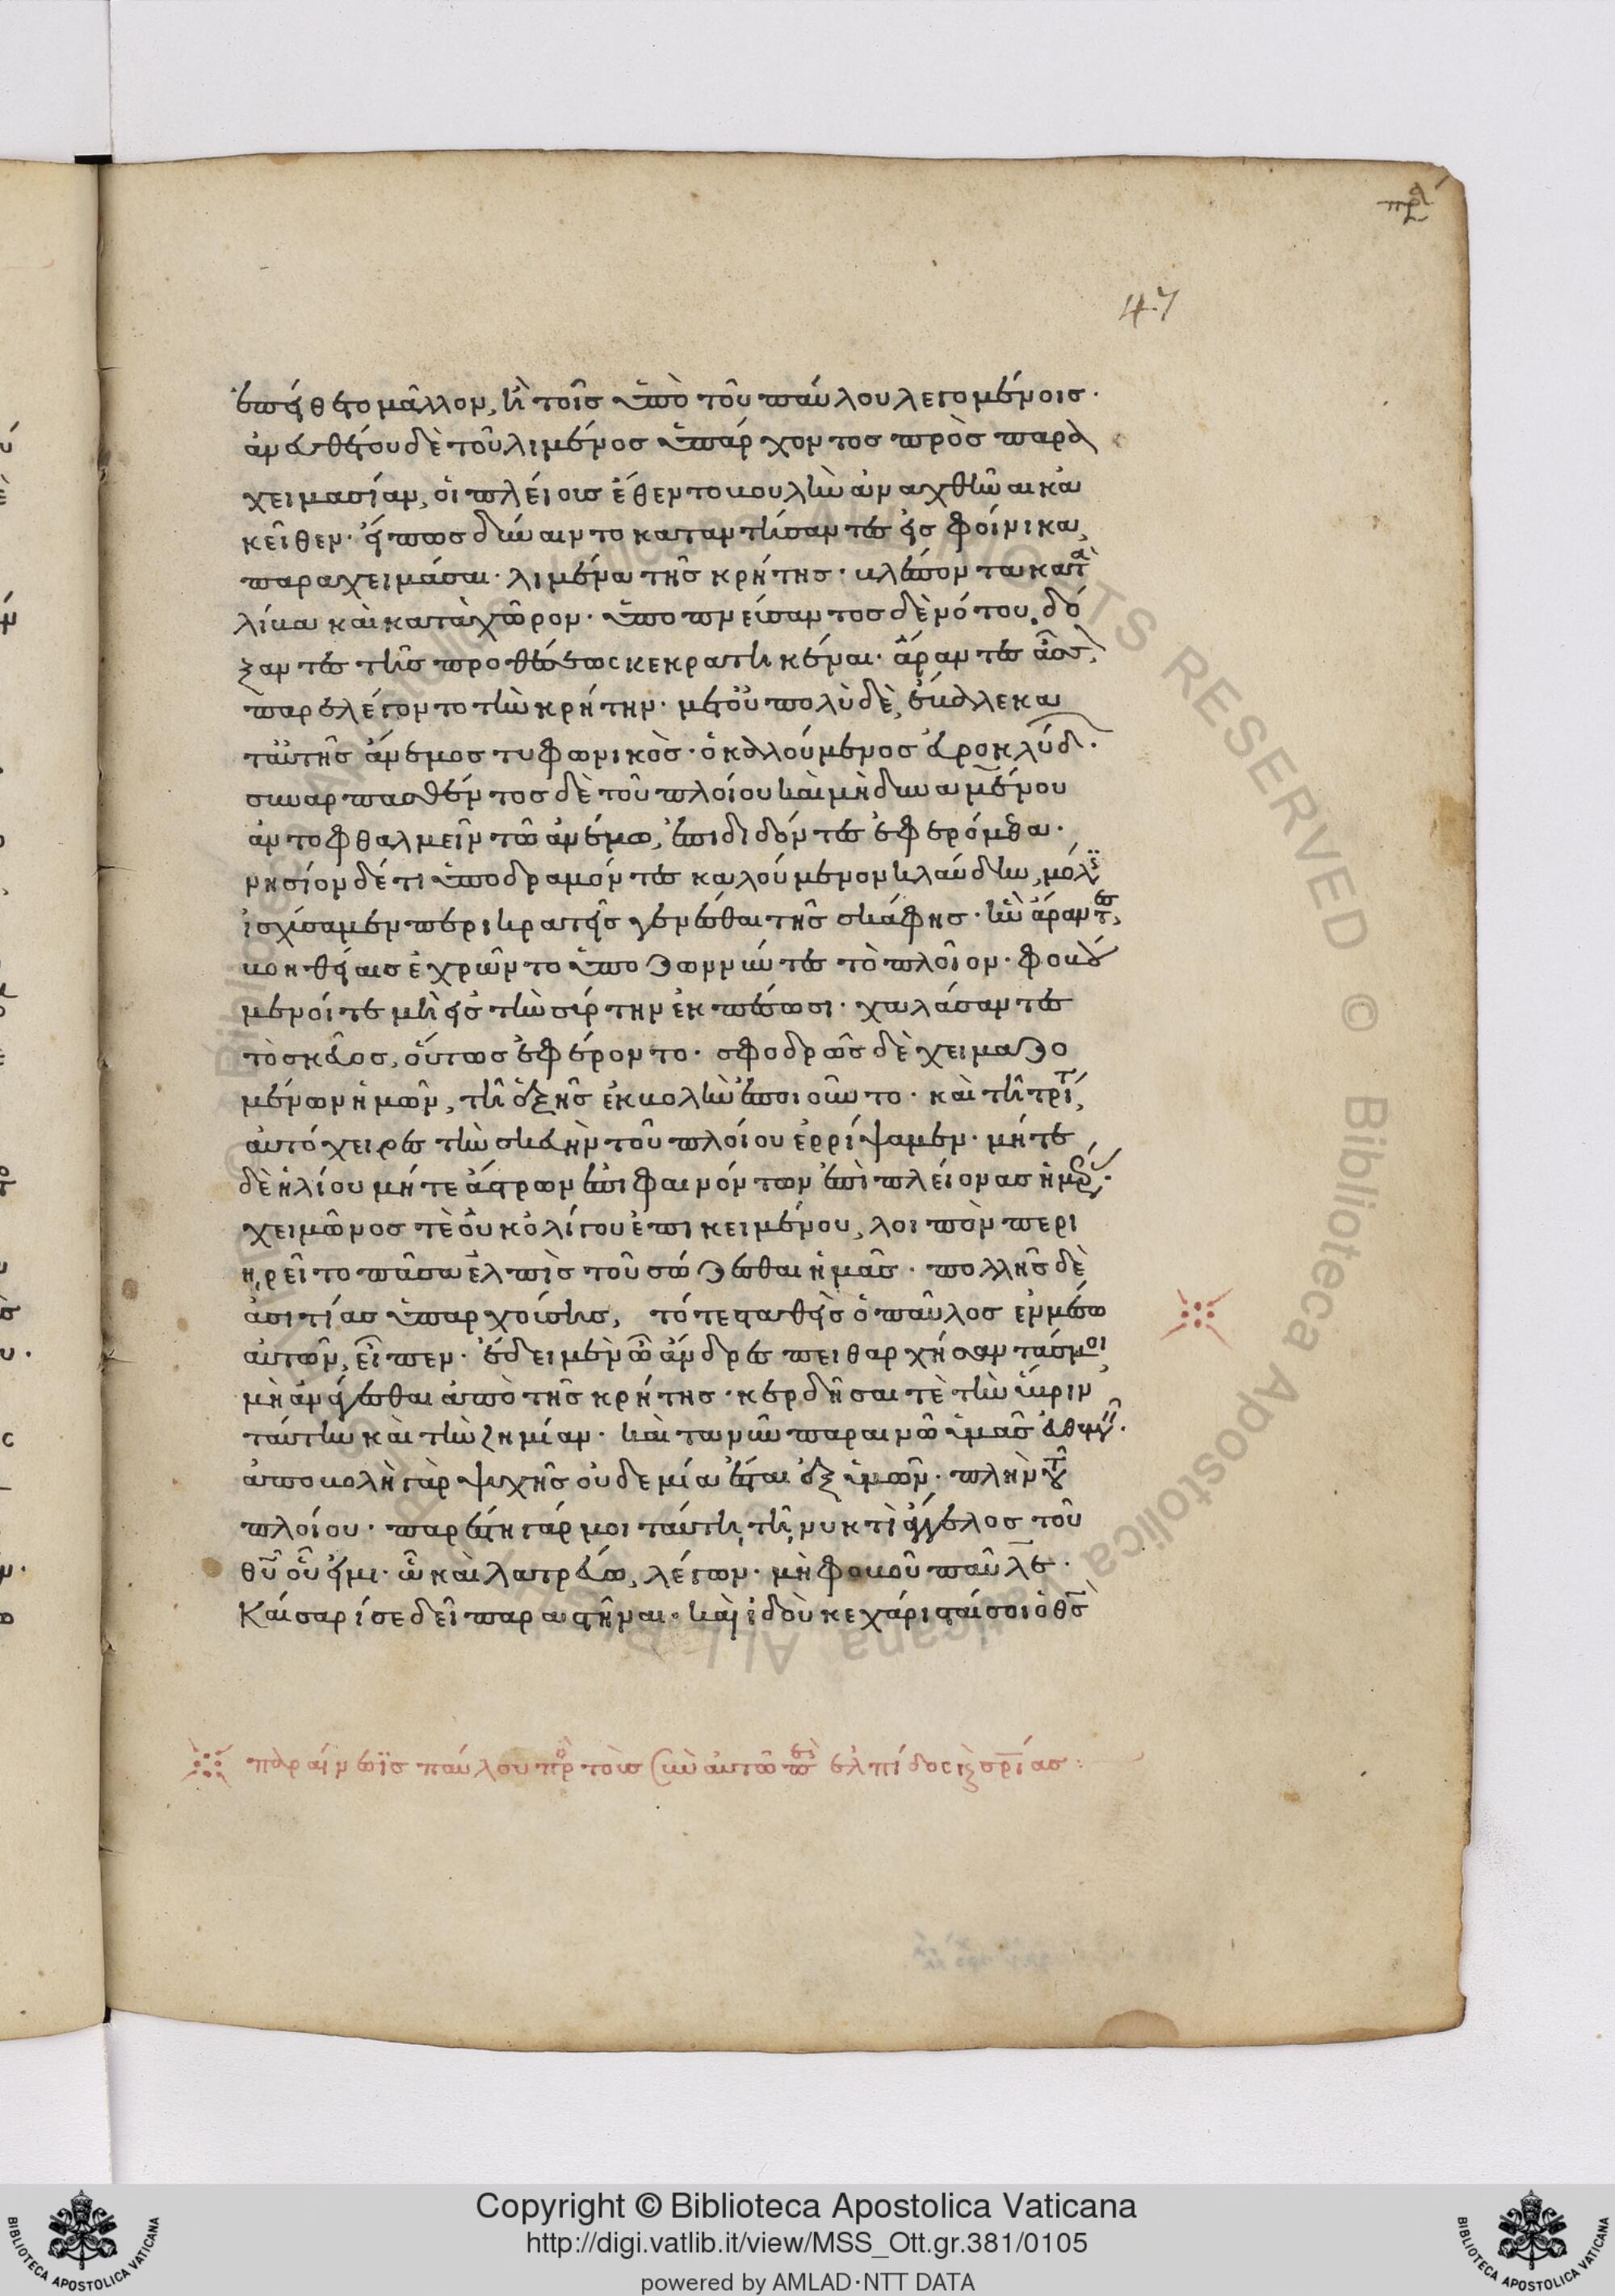 πρξ
47
ἐπείθετο μᾶλλον, ἢ τοῖς ὑπὸ τοῦ παύλου λεγομένοις·
ἀνευθέτου δὲ τοῦ λιμένος ὑπάρχοντος πρὸς παρα
χειμασίαν, οἱ πλείους ἔθεντο βουλὴν ἀναχθῆναι κα
κεῖθεν· εἴπως δύναιντο καταντήσαντες εἰς φοίνικα,
παραχειμάσαι· λιμένα τῆς κρήτης· βλέποντα κατὰ
λίβα καὶ κατὰ χῶρον· ὑποπνεύσαντος δὲ νότου, δό
ξαντες τῆς προθέσεως κεκρατηκέναι· ἄραντες ἆσσ,
παρελέγοντο τὴν κρήτην· μετ οὐ πολὺ δὲ, ἔβαλλε κα
τ αὐτῆς ἄνεμος τυφωνικὸς· ὁ καλούμενος εὐροκλύδ·
συναρπασθέντος δὲ τοῦ πλοίου καὶ μὴ δυναμένου
ἀντοφθαλμεῖν τῶ ἀνέμω, ἐπιδιδόντες ἐφερόμεθα·
νησίον δέ τι ὑποδραμόντες καλούμενον κλαύδην, μόλις
ἰσχύσαμεν περικρατεῖς γενέσθαι τῆς σκάφης· ἣν ἄραντες,
βοηθείαις ἐχρῶντο ὑποζωννύντες τὸ πλοῖον· φοβού
μενοί τε μὴ εἰς τὴν σύρτην ἐκπέσωσι· χαλάσαντες
τὸ σκεῦος, οὕτως ἐφέροντο· σφοδρῶς δὲ χειμαζο
μένων ἡμῶν, τῆ ἑξῆς ἐκβολὴν ἐποιοῦντο· καὶ τῆ τρίτ,
αὐτόχειρες τὴν σκευὴν τοῦ πλοίου ἐρρίψαμεν· μήτε
δὲ ἡλίου μήτε ἄστρων ἐπιφαινόντων ἐπὶ πλείονας ἡμέρ·
χειμῶνος τὲ οὐκ ὀλίγου ἐπικειμένου, λοιπὸν περι
ηρεῖτο πᾶσα ἐλπὶς τοῦ σώζεσθαι ἡμᾶς· πολλῆς δὲ
ἀσιτίας ὑπαρχούσης, τότε σταθεὶς ὁ παῦλος ἐν μέσω
αὐτῶν, εἶπεν· ἔδει μὲν ὦ ἄνδρες πειθαρχήσαντάς μοι,
μὴ ἀνάγεσθαι ἀπὸ τῆς κρήτης· κερδῆσαι τὲ τὴν ὕβριν
ταύτην καὶ τὴν ζημίαν· καὶ τανῦν παραινῶ ὑμᾶς εὐθυμεῖν·
ἀποβολὴ γὰρ ψυχῆς οὐδεμία ἔσται ἐξ ὑμῶν· πλὴν τοῦ
πλοίου· παρέστη γάρ μοι ταύτη τῆ νυκτὶ ἄγγελος τοῦ
θυ οὗ εἰμι· ὧ καὶ λατρεύω, λέγων· μὴ φοβοῦ παῦλε·
Καίσαρί σε δεῖ παραστῆναι· καὶ ἰδοὺ κεχάρισταί σοι ὁ θς
παραίνεσις παύλου πρὸς τοὺς σὺν αὐτῶ περὶ ἐλπίδος καὶ σρίας:
Copyright © Biblioteca Apostolica Vaticana
http://digi.vatlib.it/view/MSS_Ott.gr.381/0105
powered by AMLAD·NTT DATA
BIBLIOTECA APOSTOLICA VATICANA
BIBLIOTECA APOSTOLICA VATICANA